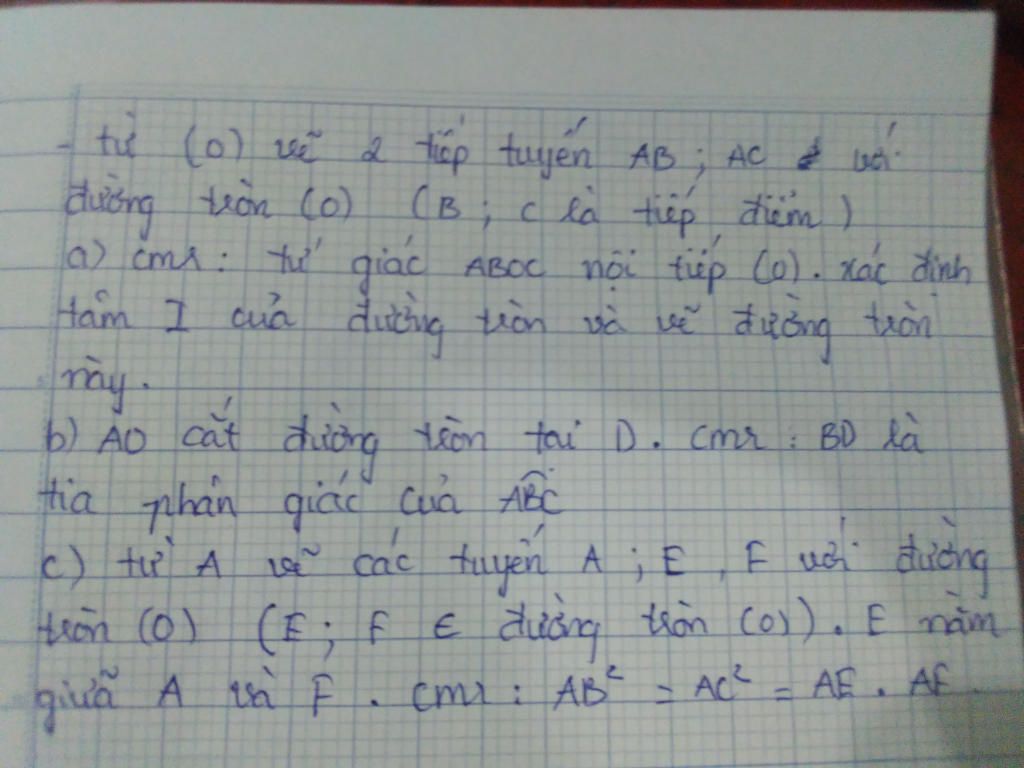 - từ (O) vẽ 2 tiếp tuyến AB ; AC với
đường tròn (O) (B ; C là tiếp điểm)
a) cmr : tứ giác ABOC nội tiếp (O). xác định
tâm I của đường tròn và vẽ đường tròn
này.
b) AO cắt đường tròn tai D. cmr : BD là
tia phân giác của ABC
c) từ A vẽ các tuyến A ; E , F với đường
tròn (O) (E ; F ∈ đường tròn (O)). E nằm
giữa A và F . cmr : AB² = AC² = AE . AF.